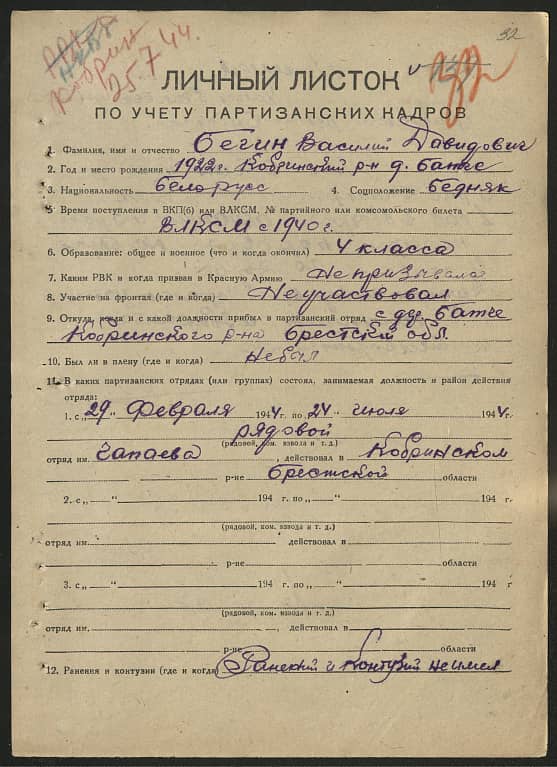 32
Кобрин
25.7.44.
ЛИЧНЫЙ ЛИСТОК
ПО УЧЕТУ ПАРТИЗАНСКИХ КАДРОВ
1. Фамилия, имя и отчество Бегин Василий Давидович
2. Год и место рождения 1922г. Кобринский р-н д. Батче
3. Национальность белорусс 4. Соцположение бедняк
5 Время поступления в ВКП(б) или ВЛКСМ, № партийного или комсомольского билета
ВЛКСМ с 1940 г.
6. Образование: общее и военное (что и когда окончил) 4 класса
7. Каким РВК и когда призван в Красную Армию Не призывался
8. Участие на фронтах (где и когда) Не участвовал
9. Откуда, когда и с какой должности прибыл в партизанский отряд с дер. Батче
Кобринского р-на Брестской обл
10. Был ли в плену (где и когда) не был
11. В каких партизанских отрядах (или группах) состоял, занимаемая должность и район действия
отряда:
1. с „29„ Февраля 1944 г. по „24„ июля 1944 г.
рядовой
(рядовой, ком. взвода и т. д.)
отряд им. Чапаева, действовал в Кобринском
р-не Брестской области
2. с „ “ 194 г. по „ “ 194 г.
(рядовой, ком. взвода и т. д.)
отряд им. действовал в
р-не области
3. с „ “ 194 г. по „ “ 194 г
(рядовой, ком. взвода и т. д.)
отряд им. действовал в
р-не области
12. Ранения и контузии (где и когда) Ранений и Контузий не имел